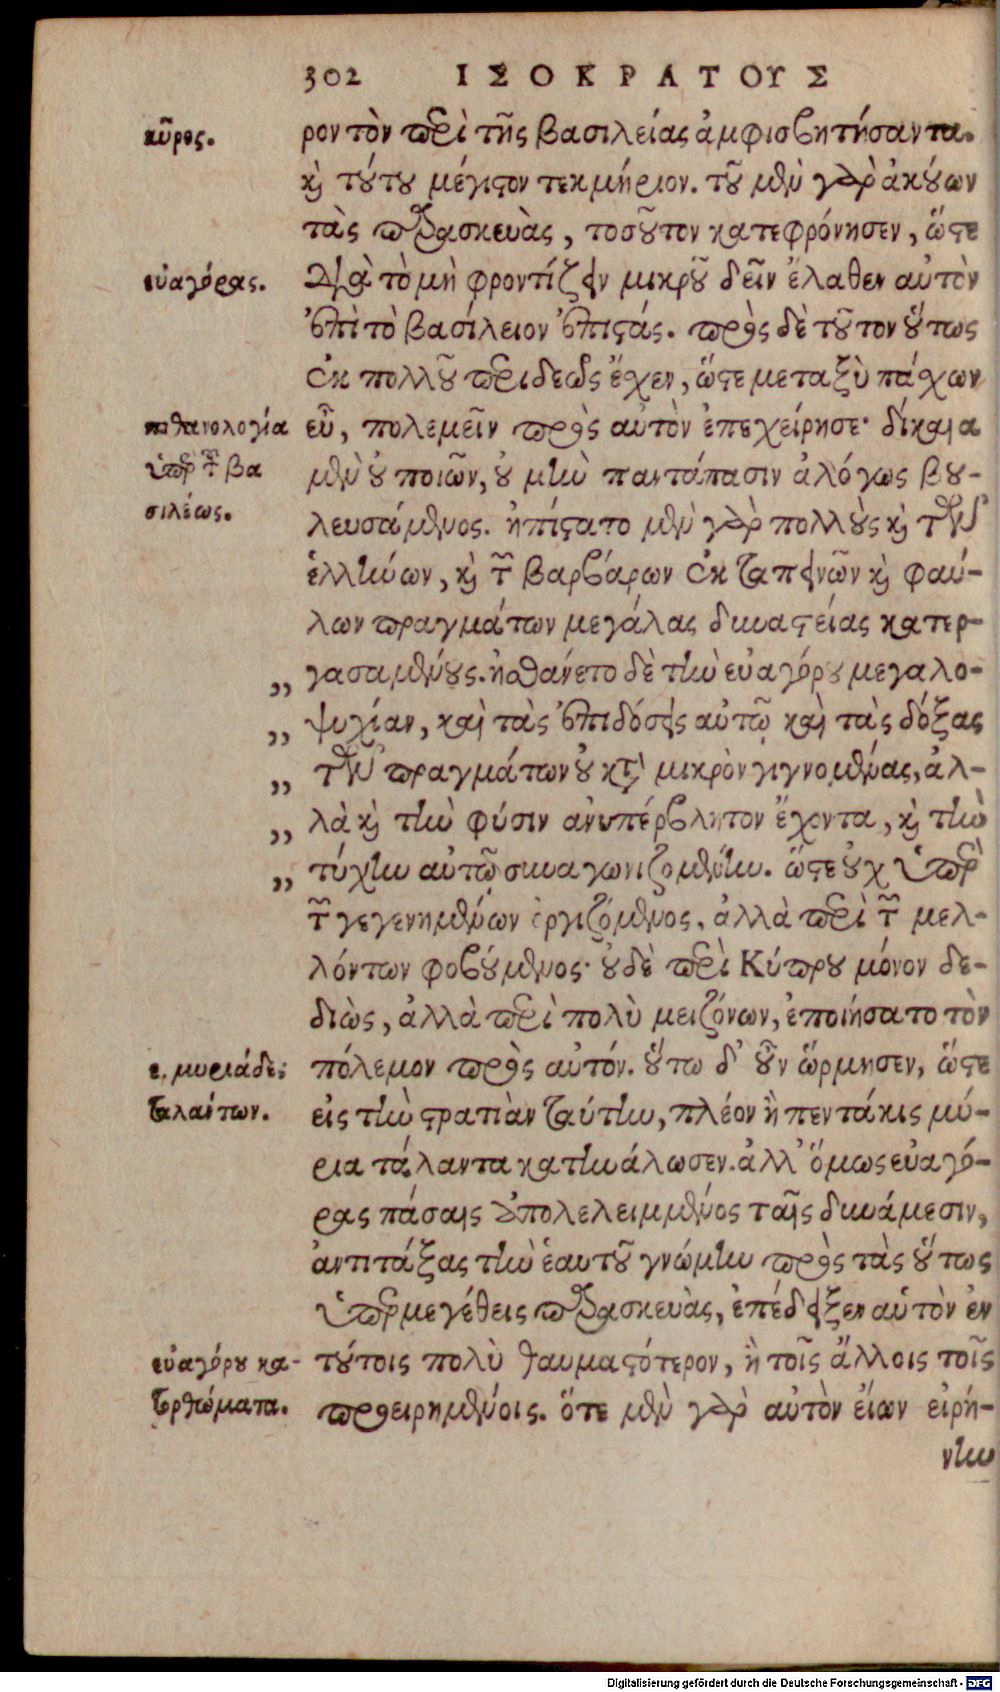 302 ΙΣΟΚΡΑΤΟΥΣ
κῦρος.
ρον τὸν περὶ τῆς βασιλείας ἀμφισβητήσαντα.
καὶ τούτου μέγιστον τεκμήριον. τοῦ μὲν γὰρ ἀκούων
τὰς παρασκευὰς, τοσοῦτον κατεφρόνησεν, ὥστε
εὐαγόρας.
διὰ τὸ μὴ φροντίζειν μικροῦ δεῖν ἔλαθεν αὐτὸν
ἐπὶ τὸ βασίλειον ἐπιστάς. πρὸς δὲ τοῦτον οὕτως
ἐκ πολλοῦ περιδεῶς ἔχεν, ὥστε μεταξὺ πάχων
πιθανολογία
εὖ, πολεμεῖν πρὸς αὐτὸν ἐπεχείρησε· δίκαια
ὑπὲρ τῶν βα
μὲν οὐ ποιῶν, οὐ μὴν παντάπασιν ἀλόγως βου-
σιλέως.
λευσάμενος. ἠπίστατο μὲν γὰρ πολλοὺς καὶ τῶν
ἑλλήνων, καὶ τῶν βαρβάρων ἐκ ταπεινῶν καὶ φαύ-
λων πραγμάτων μεγάλας δυναστείας κατερ-
„ γασαμένους. ᾐσθάνετο δὲ τὴν εὐαγόρου μεγαλο-
„ ψυχίαν, καὶ τὰς ἐπιδόσεις αὐτῷ καὶ τὰς δόξας
„ τῶν πραγμάτων οὐ κατὰ μικρὸν γιγνομένας, ἀλ-
„ λὰ καὶ τὴν φύσιν ἀνυπέρβλητον ἔχοντα, καὶ τὴν
„ τύχην αὐτῷ συναγωνιζομένην. ὥστε οὐχ ὑπὲρ
τῶν γεγενημένων ὀργιζόμενος, ἀλλὰ περὶ τῶν μελ-
λόντων φοβούμενος· οὐδὲ περὶ Κύπρου μόνον δε-
διὼς, ἀλλὰ περὶ πολὺ μειζόνων, ἐποιήσατο τὸν
ε. μυριάδες
πόλεμον πρὸς αὐτόν. οὕτω δ' οὖν ὥρμησεν, ὥστε
ταλάντων.
εἰς τὴν στρατιὰν ταύτην, πλέον ἢ πεντάκις μύ-
ρια τάλαντα κατηνάλωσεν. ἀλλ' ὅμως εὐαγό-
ρας πάσαις ἀπολελειμμένος ταῖς δυνάμεσιν,
ἀντιτάξας τὴν ἑαυτοῦ γνώμην πρὸς τὰς οὕτως
ὑπερμεγέθεις παρασκευὰς, ἐπέδειξεν αὑτὸν ἐν
εὐαγόρου κα-
τούτοις πολὺ θαυμαστότερον, ἢ τοῖς ἄλλοις τοῖς
τορθώματα.
προειρημένοις. ὅτε μὲν γὰρ αὐτὸν εἴων εἰρή-
νην
Digitalisierung gefördert durch die Deutsche Forschungsgemeinschaft - DFG